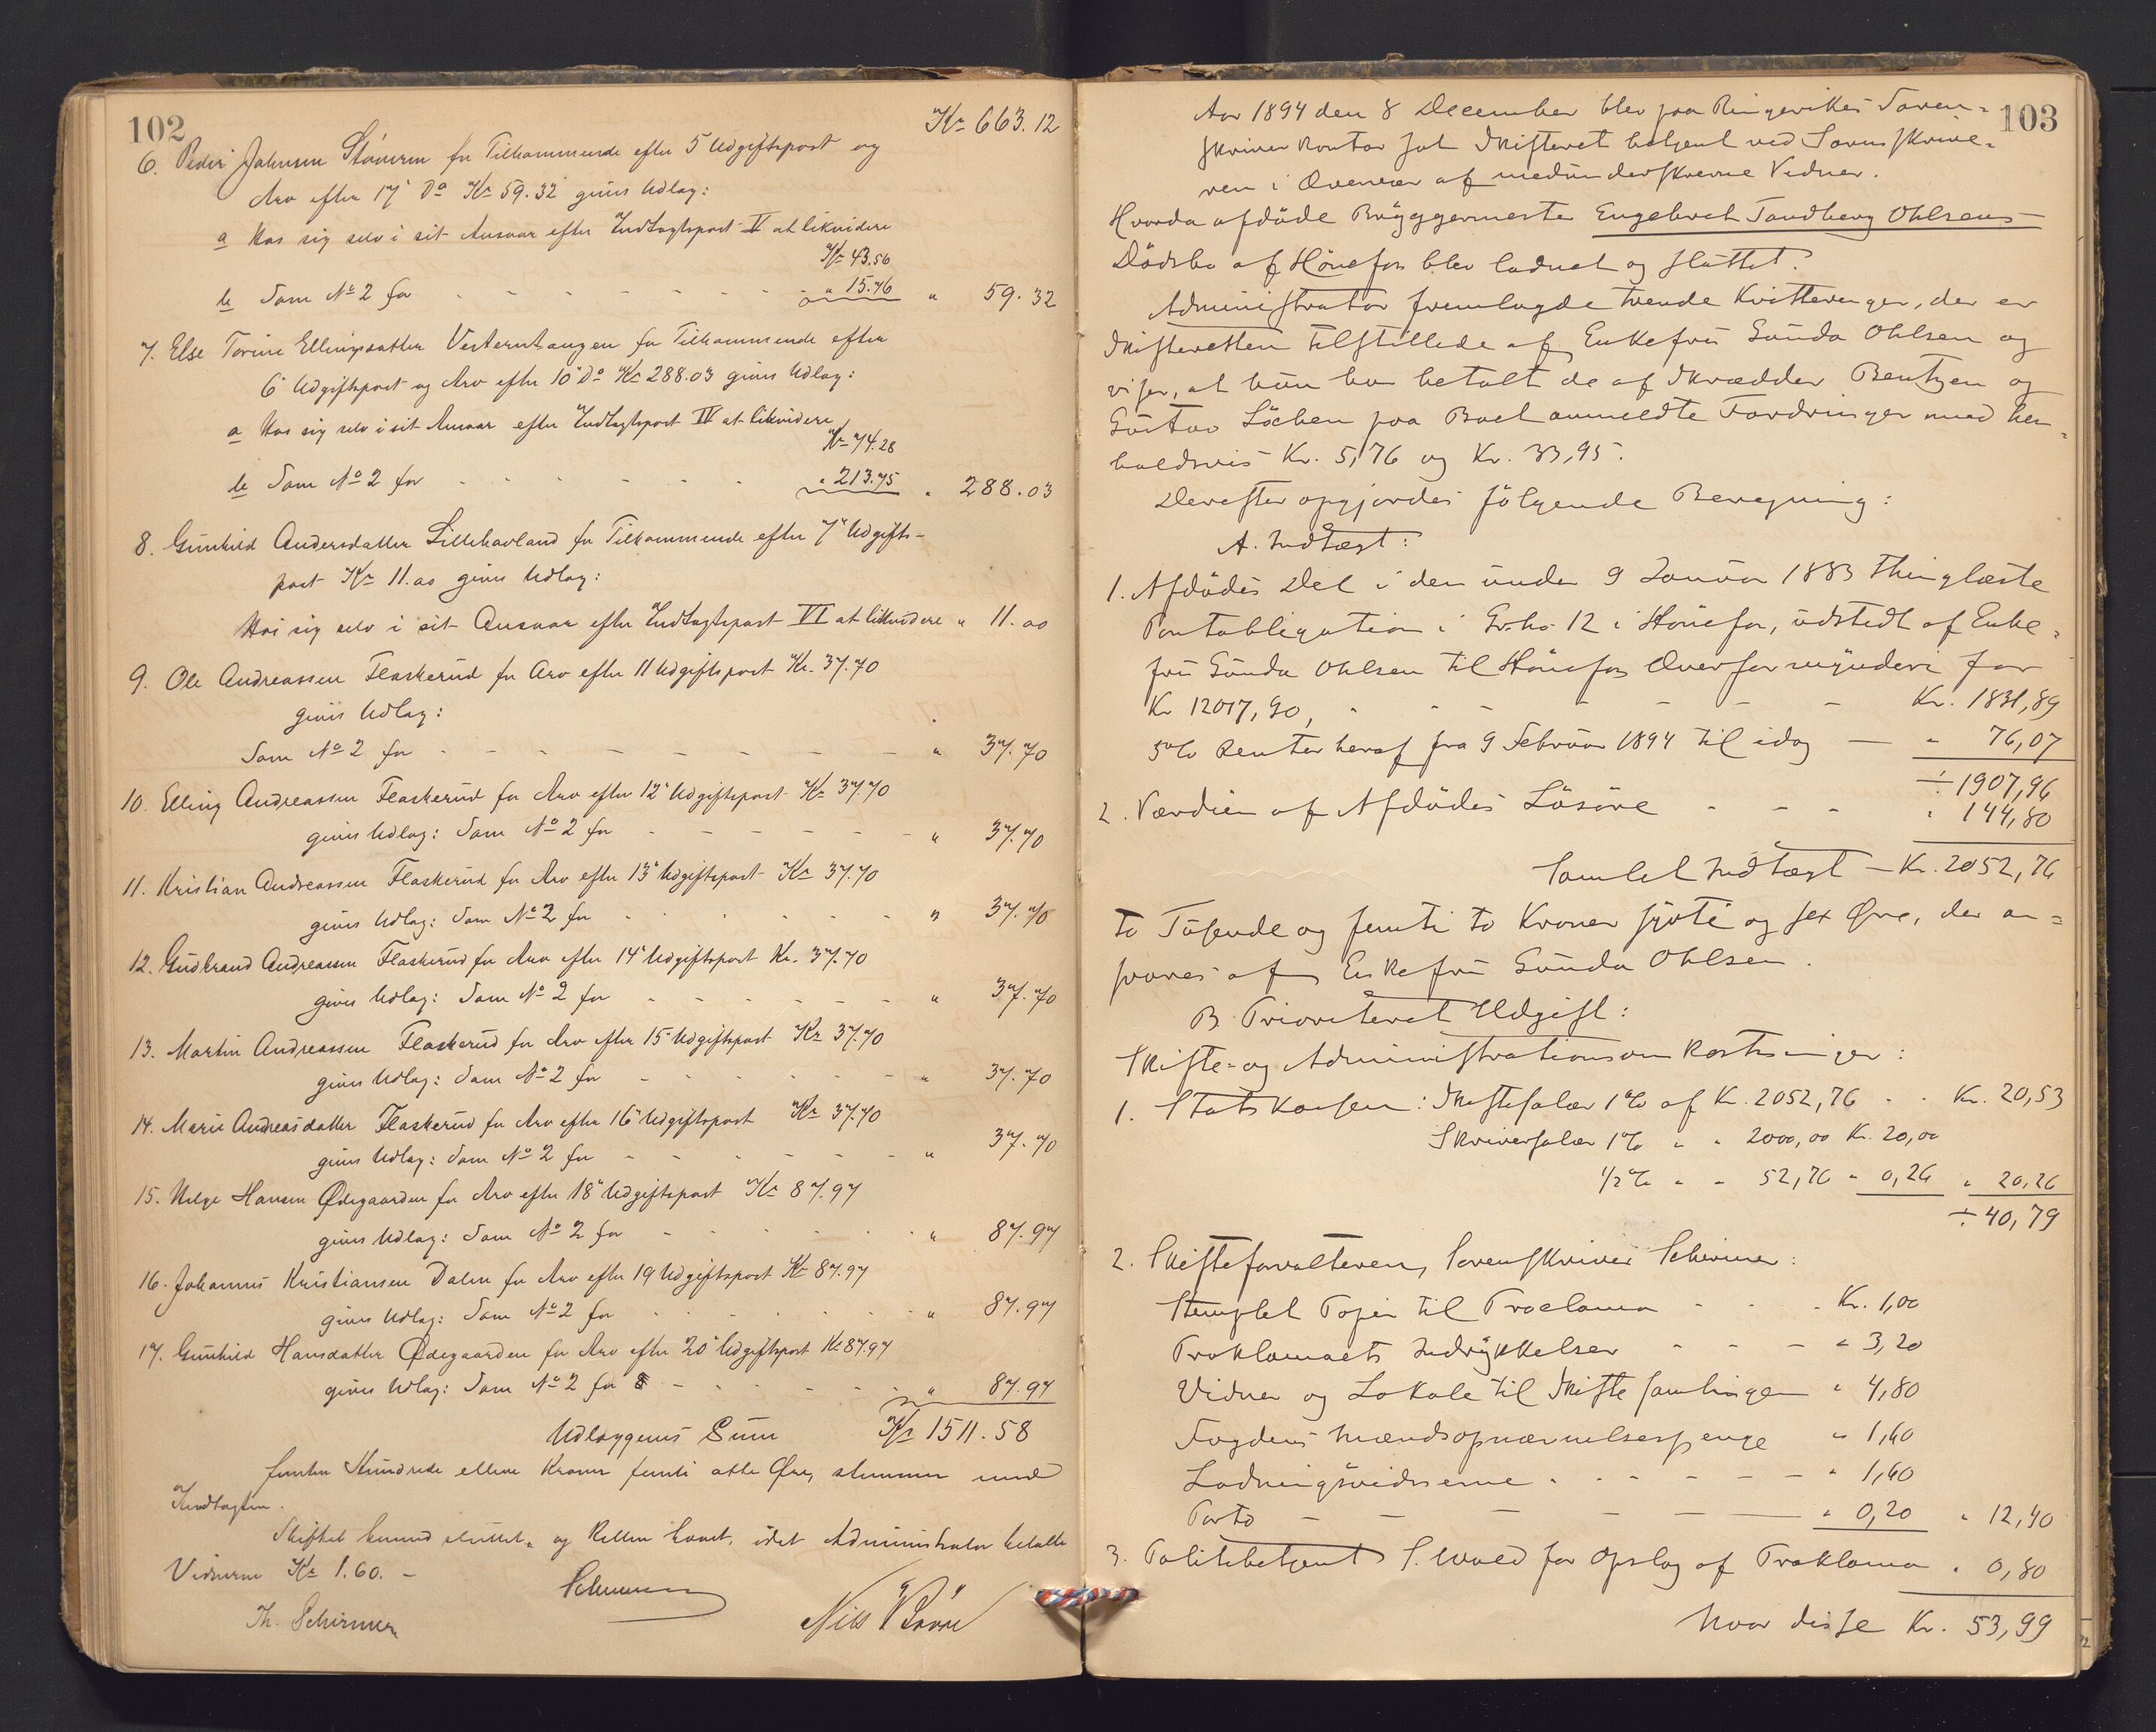 102
Kr 663.12
6. Peder Johnsen Stöveren for Tilkommende efter 5 Udgiftspost og
Arv efter 17' Do Kr 59.32 gives Udlag:
a Hos sig selv i sit Ansvar efter Indtægtspost V at likvidere
Kr 43.56
b Som No 2 for - - - - - - - " 15.76 " 59.32
7. Else Torine Ellingsdatter Vesterntangen for Tilkommende efter
6' Udgiftspost og Arv efter 10' Do Kr 288.03 gives Udlag:
a Hos sig selv i sit Ansvar efter Indtægtspost IV at likvidere
Kr 74.28
b Som No 2 for - - - - - - " 213.75 " 288.03
8. Gunhild Andersdatter Lillehavland for Tilkommende efter 7' Udgifts-
post Kr 11.00 gives Udlag:
Hos sig selv i sit Ansvar efter Indtægtspost VI at likvidere " 11.00
9. Ole Andreassen Flaskerud for Arv efter 11 Udgiftspost Kr. 37.70
gives Udlag:
Som No 2 for - - - - - - - - " 37.70
10. Elling Andreassen Flaskerud for Arv efter 12' Udgiftspost Kr 37.70
gives Udlag: Som No 2 for - - - - - - " 37.70
11. Kristian Andreassen Flaskerud for Arv efter 13' Udgiftspost Kr 37.70
gives Udlag: Som No 2 for - - - - - - " 37.70
12. Gudbrand Andreassen Flaskerud for Arv efter 14' Udgiftspost Kr. 37.70
gives Udlag: Som No 2 for - - - - - - " 37.70
13. Martin Andreassen Flaskerud for Arv efter 15' Udgiftspost Kr 37.70
gives Udlag: Som No 2 for - - - - - - " 37.70
14. Marie Andreasdatter Flaskerud for Arv efter 16' Udgiftspost Kr 37.70
gives Udlag: Som No 2 for - - - - - - " 37.70
15. Helge Hansen Ødegaarden for Arv efter 18' Udgiftspost Kr 87.97
gives Udlag: Som No 2 for - - - - - - " 87.97
16. Johannes Kristiansen Dalen for Arv efter 19 Udgiftspost Kr 87.97
gives Udlag: Som No 2 for - - - - - - " 87.97
17. Gunhild Hansdatter Ødegaarden for Arv efter 20' Udgiftspost Kr 87.97
gives Udlag: Som No 2 for - - - - - - " 87.97
Udlæggenes Sum Kr 1511.58
femten Hundrede elleve Kroner femti otte Øre, stemmer med
Indtægten.
Skiftet hermed sluttet, og Retten hævet, idet Administrator betalte
Vidnerne Kr 1.60. -
Schirmer
Th. Schirmer Nils Braa
103
Aar 1894 den 8 December blev paa Ringerikes Soren-
skriverkontor sat Skifteret betjent ved Sorenskrive-
ren i Overvær af medunderskrevne Vidner.
Hvorda afdöde Bryggermester Engebret Tandberg Ohlsens
Dödsbo af Hönefos blev lodnet og sluttet.
Administrator fremlagde tvende Kvitteringer, der er
Skifteretten tilstillede af Enkefru Gunda Ohlsen og
viser, at hun har betalt de af Skrædder Bentzen og
Gustav Löchen paa Boet anmeldte Fordringer med hen-
holdsvis Kr. 5,76 og Kr. 33,95.
Derefter opgjordes fölgende Beregning:
A. Indtægt:
1. Afdödes Del i den under 9 Januar 1883 thinglæste
Pantobligation i Gr. No 12 i Hönefos, udstedt af Enke-
fru Gunda Ohlsen til Hönefos Overformynderi for
Kr 12017,90, - - - - - - - Kr. 1831,89
5% Renter heraf fra 9 Februar 1894 til idag — " 76,07
÷ 1907,96
2. Værdien af Afdödes Lösöre - - - " 144,80
Samlet Indtægt — Kr. 2052,76
to Tusende og femti to Kroner sjøti og sex Øre, der an-
svares af Enkefru Gunda Ohlsen.
B. Prioriteret Udgift:
Skifte- og Administrationsomkostninger:
1. Statskassen: Skiftesalær 1% af Kr. 2052,76 - - Kr. 20,53
Skriversalær 1% " " 2000,00 Kr. 20,00
1/2% " " 52,76 " 0,26 " 20,26
÷ 40,79
2. Skifteforvalteren, Sorenskriver Schirmer:
Stemplet Papir til Proclama - - - Kr. 1,00
Proklamaets Indrykkelser - - - " 3,20
Vidner og Lokale til Skiftesamlingen " 4,80
Fogdens Mændsopnævnelsespenge " 1,60
Lodningsvidnerne - - - - - " 1,60
Porto - - - - - " 0,20 " 12,40
3. Politibetjent S. Wold for Opslag af Proklama " 0,80
hvor disse Kr. 53,99